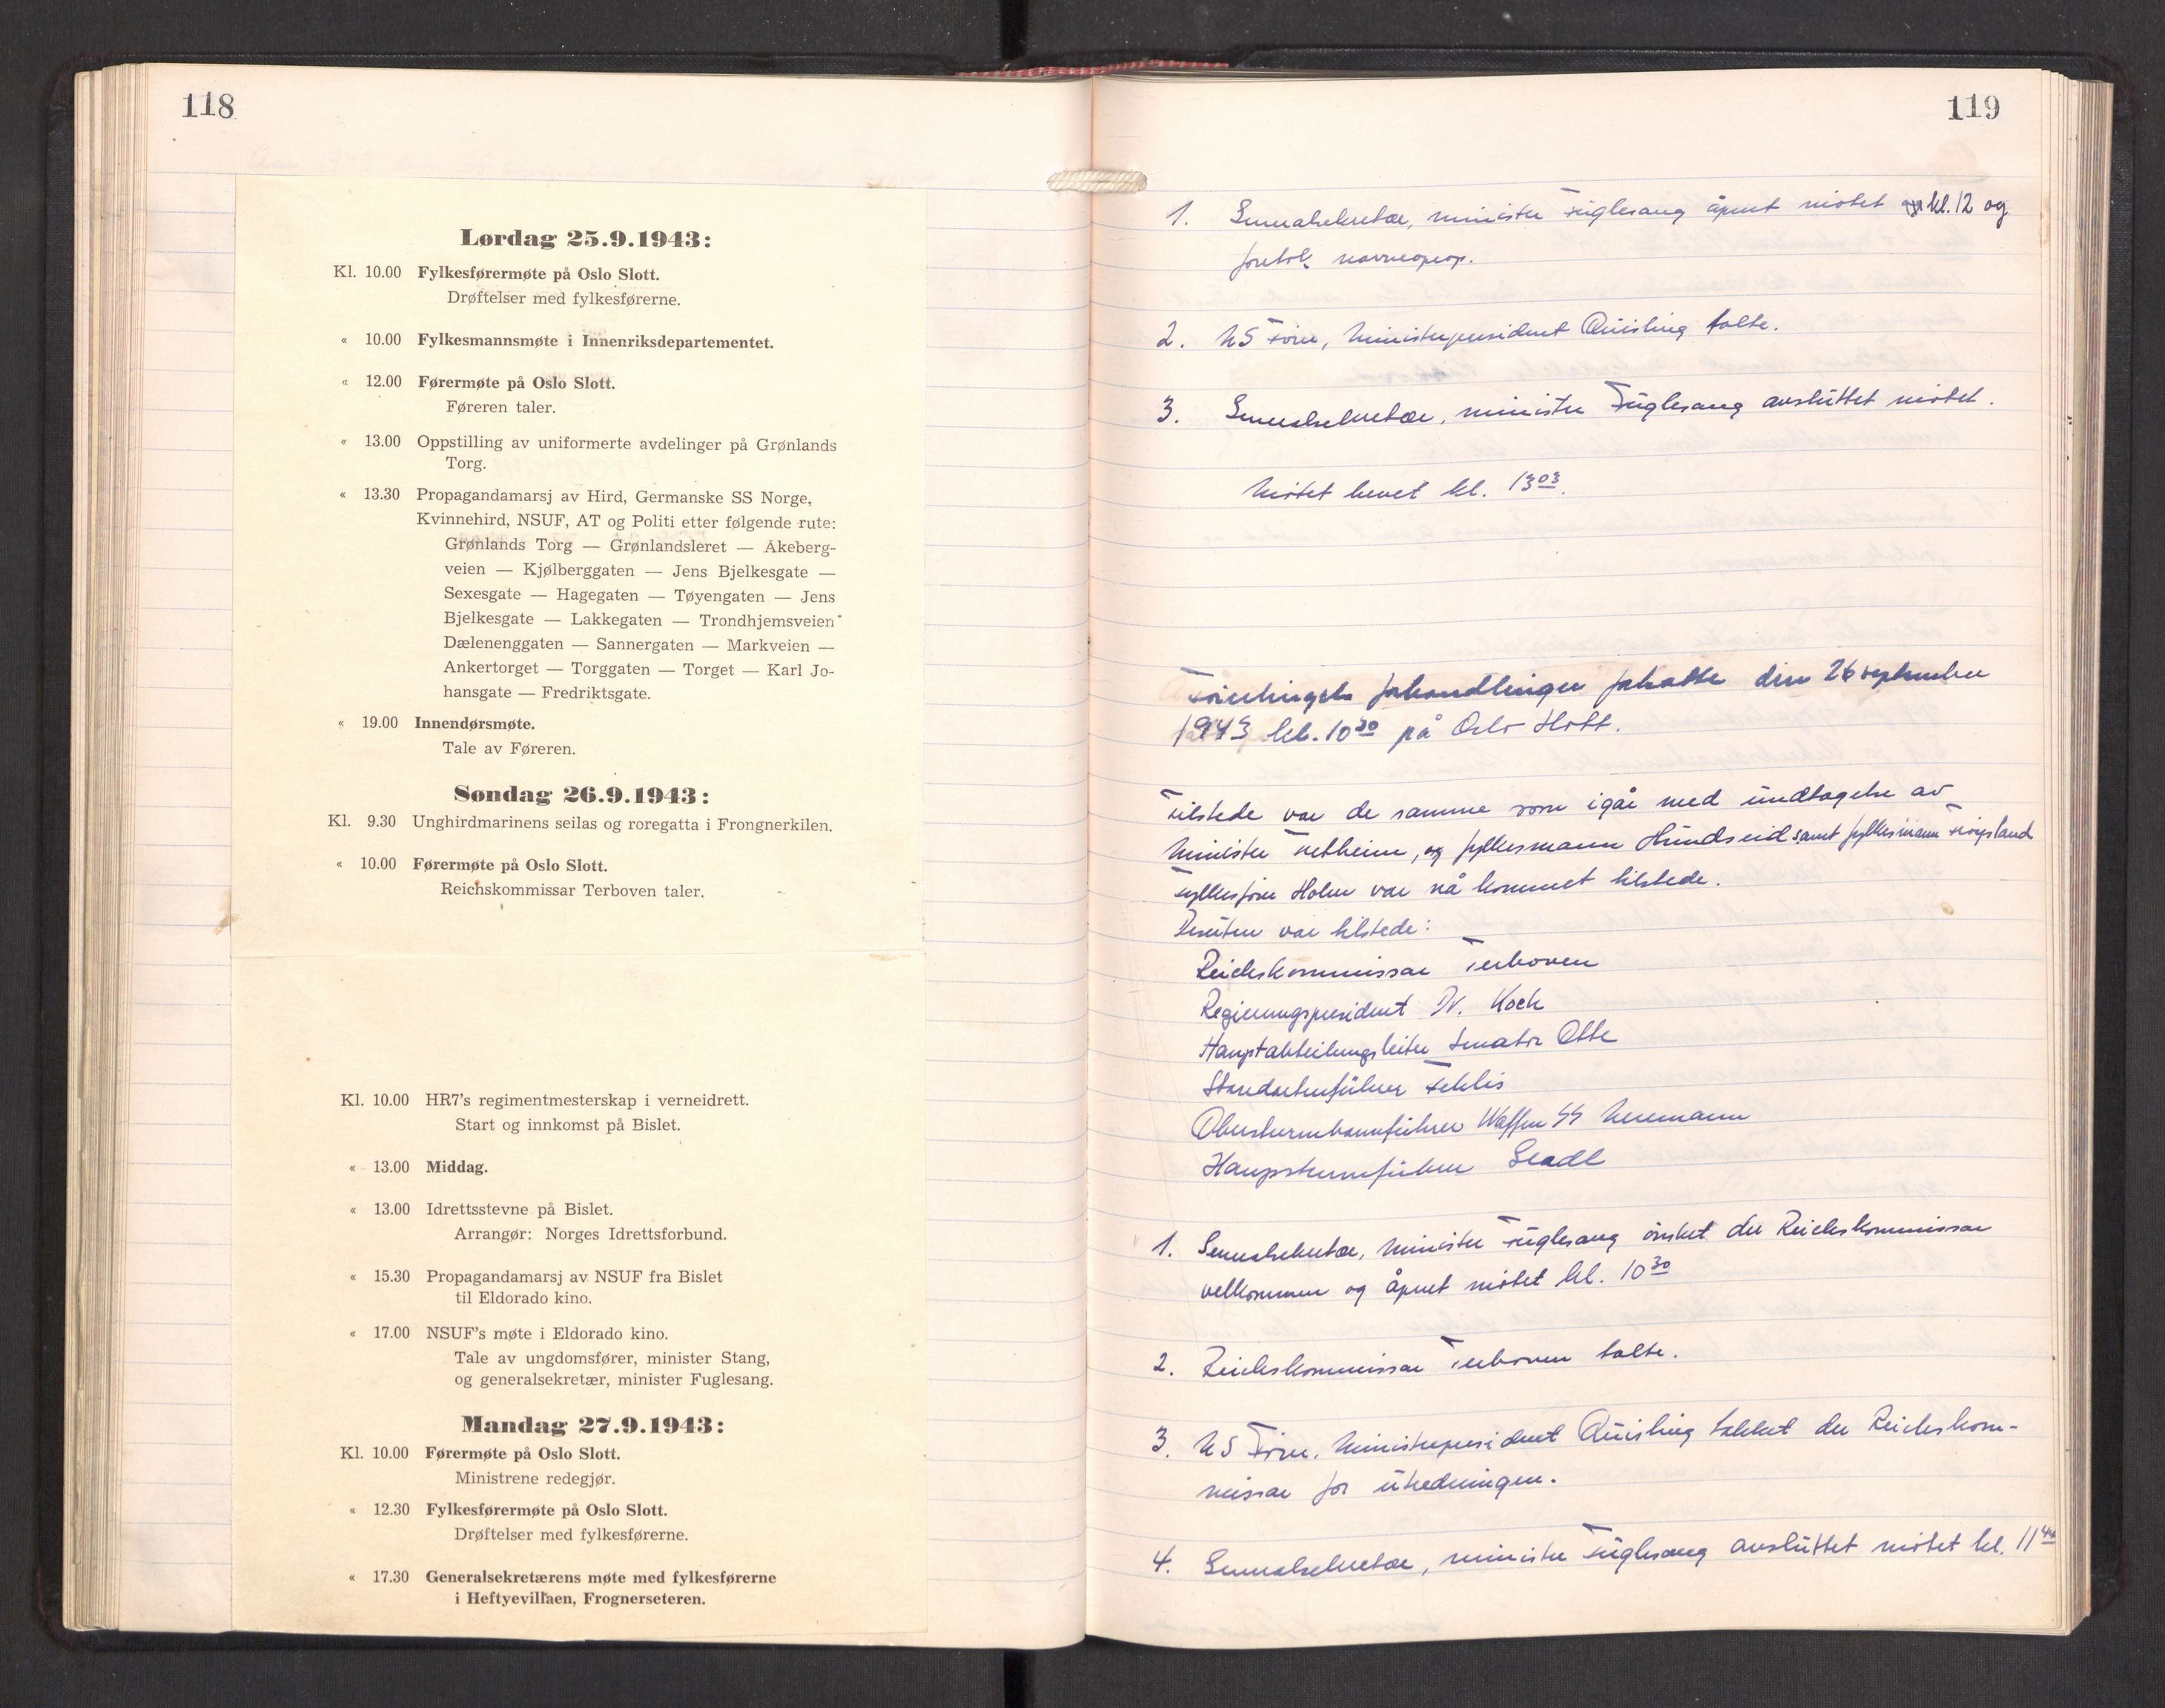 118
Lørdag 25.9.1943:
Kl. 10.00 Fylkesførermøte på Oslo Slott.
Drøftelser med fylkesførerne.
« 10.00 Fylkesmannsmøte i Innenriksdepartementet.
« 12.00 Førermøte på Oslo Slott.
Føreren taler.
« 13.00 Oppstilling av uniformerte avdelinger på Grønlands
Torg.
« 13.30 Propagandamarsj av Hird, Germanske SS Norge,
Kvinnehird, NSUF, AT og Politi etter følgende rute:
Grønlands Torg — Grønlandsleret — Åkeberg-
veien — Kjølberggaten — Jens Bjelkesgate —
Sexesgate — Hagegaten — Tøyengaten — Jens
Bjelkesgate — Lakkegaten — Trondhjemsveien
Dælenenggaten — Sannergaten — Markveien —
Ankertorget — Torggaten — Torget — Karl Jo-
hansgate — Fredriktsgate.
« 19.00 Innendørsmøte.
Tale av Føreren.
Søndag 26.9.1943:
Kl. 9.30 Unghirdmarinens seilas og roregatta i Frongnerkilen.
« 10.00 Førermøte på Oslo Slott.
Reichskommissar Terboven taler.
Kl. 10.00 HR7's regimentmesterskap i verneidrett.
Start og innkomst på Bislet.
« 13.00 Middag.
« 13.00 Idrettsstevne på Bislet.
Arrangør: Norges Idrettsforbund.
« 15.30 Propagandamarsj av NSUF fra Bislet
til Eldorado kino.
« 17.00 NSUF's møte i Eldorado kino.
Tale av ungdomsfører, minister Stang,
og generalsekretær, minister Fuglesang.
Mandag 27.9.1943:
Kl. 10.00 Førermøte på Oslo Slott.
Ministrene redegjør.
« 12.30 Fylkesførermøte på Oslo Slott.
Drøftelser med fylkesførerne.
« 17.30 Generalsekretærens møte med fylkesførerne
i Heftyevillaen, Frognerseteren.
119
1. Generalsekretær, minister Fuglesang åpnet møtet kl. 12 og
foretok navneopprop.
2. NS Fører, Ministerpresident Quisling talte.
3. Generalsekretær, minister Fuglesang avsluttet møtet.
Møtet hevet kl. 13 03.
Førertingets forhandlinger fortsatte den 26 september
1943 kl. 10 30 på Oslo Slott.
Tilstede var de samme som igår med undtagelse av
Minister og fylkesmann Hundseid samt fylkesmann
Fylkesfører Holm var nå kommet tilstede.
Desuten var tilstede:
Reichskommissar Terboven
Regierungspresident Dr. Koch
Hauptabteilungsleiter Senator Otte
Standartenführer Fehlis
Obersturmbannführer Waffen SS Neumann
Haupsturmführer
1. Generalsekretær, Minister Fuglesang ønsket der Reichskommissar
velkommen og åpnet møtet kl. 10 30
2. Reichskommissar Terboven talte.
3. NS Fører, Ministerpresident Quisling takket der Reichskom-
missar for utredningen.
4. Generalsekretær, minister Fuglesang avsluttet møtet kl. 11 44